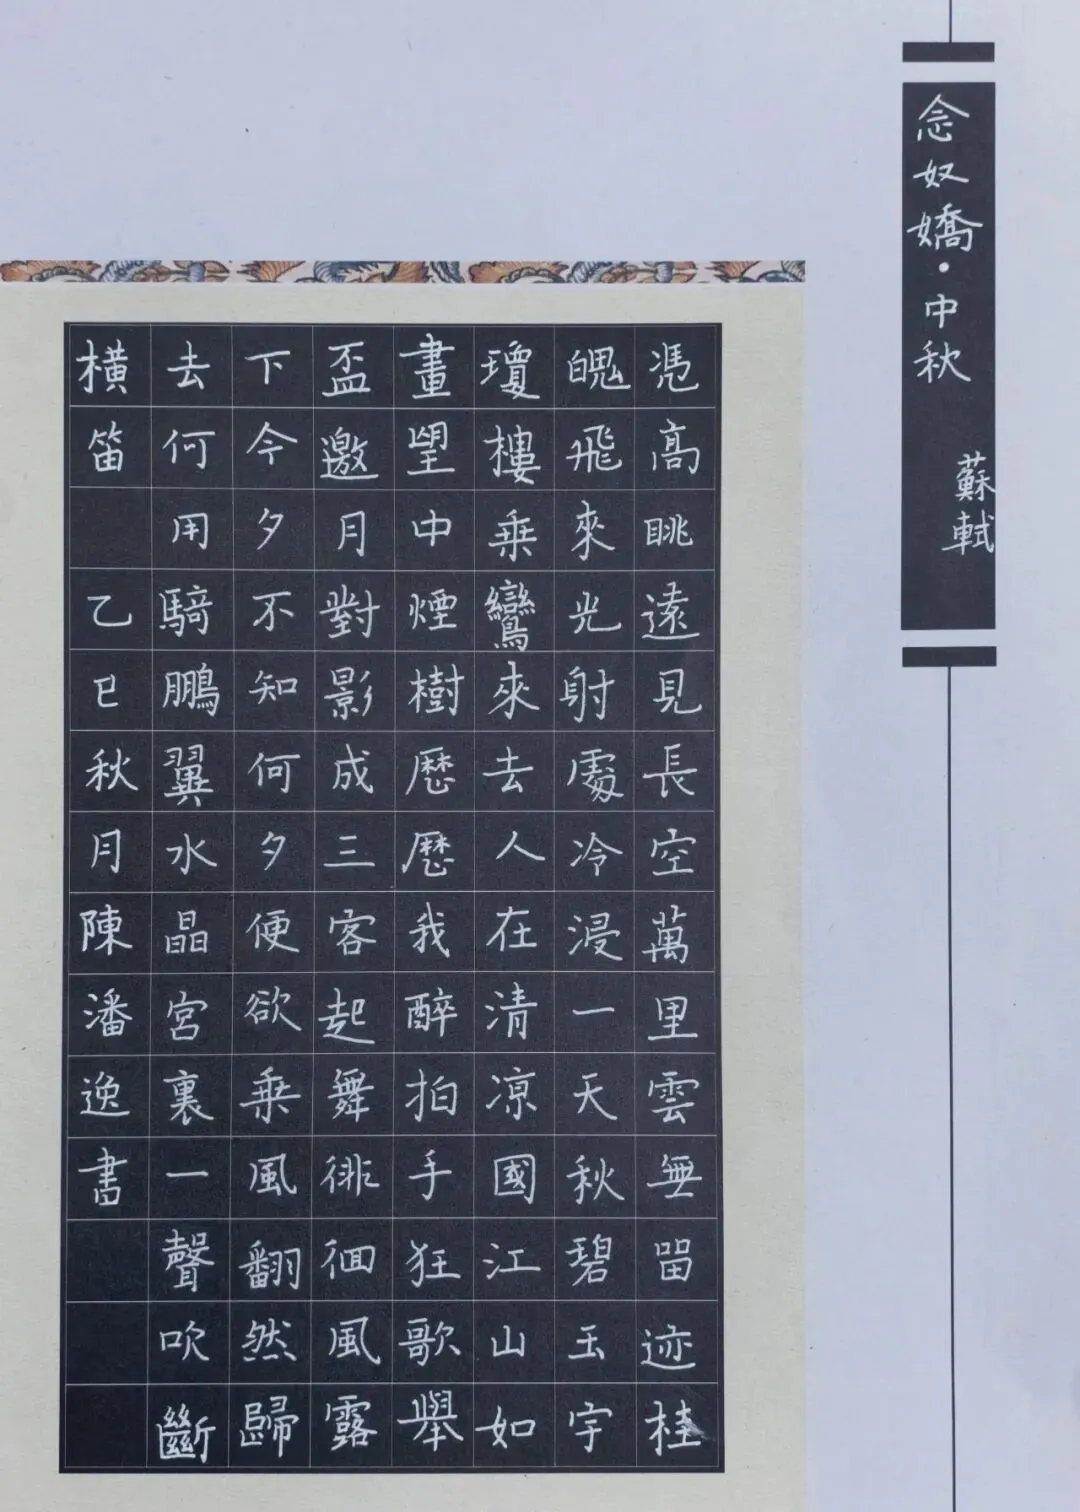 念奴嬌·中秋
蘇軾
憑高眺遠見長空萬里雲無留迹桂
魄飛來光射處冷浸一天秋碧玉宇
瓊樓乘鸞來去人在清涼國江山如
畫望中煙樹歷歷我醉拍手狂歌舉
盃邀月對影成三客起舞徘徊風露
下今夕不知何夕便欲乘風翻然歸
去何用騎鵬翼水晶宮裏一聲吹斷
橫笛 乙巳秋月陳潘逸書